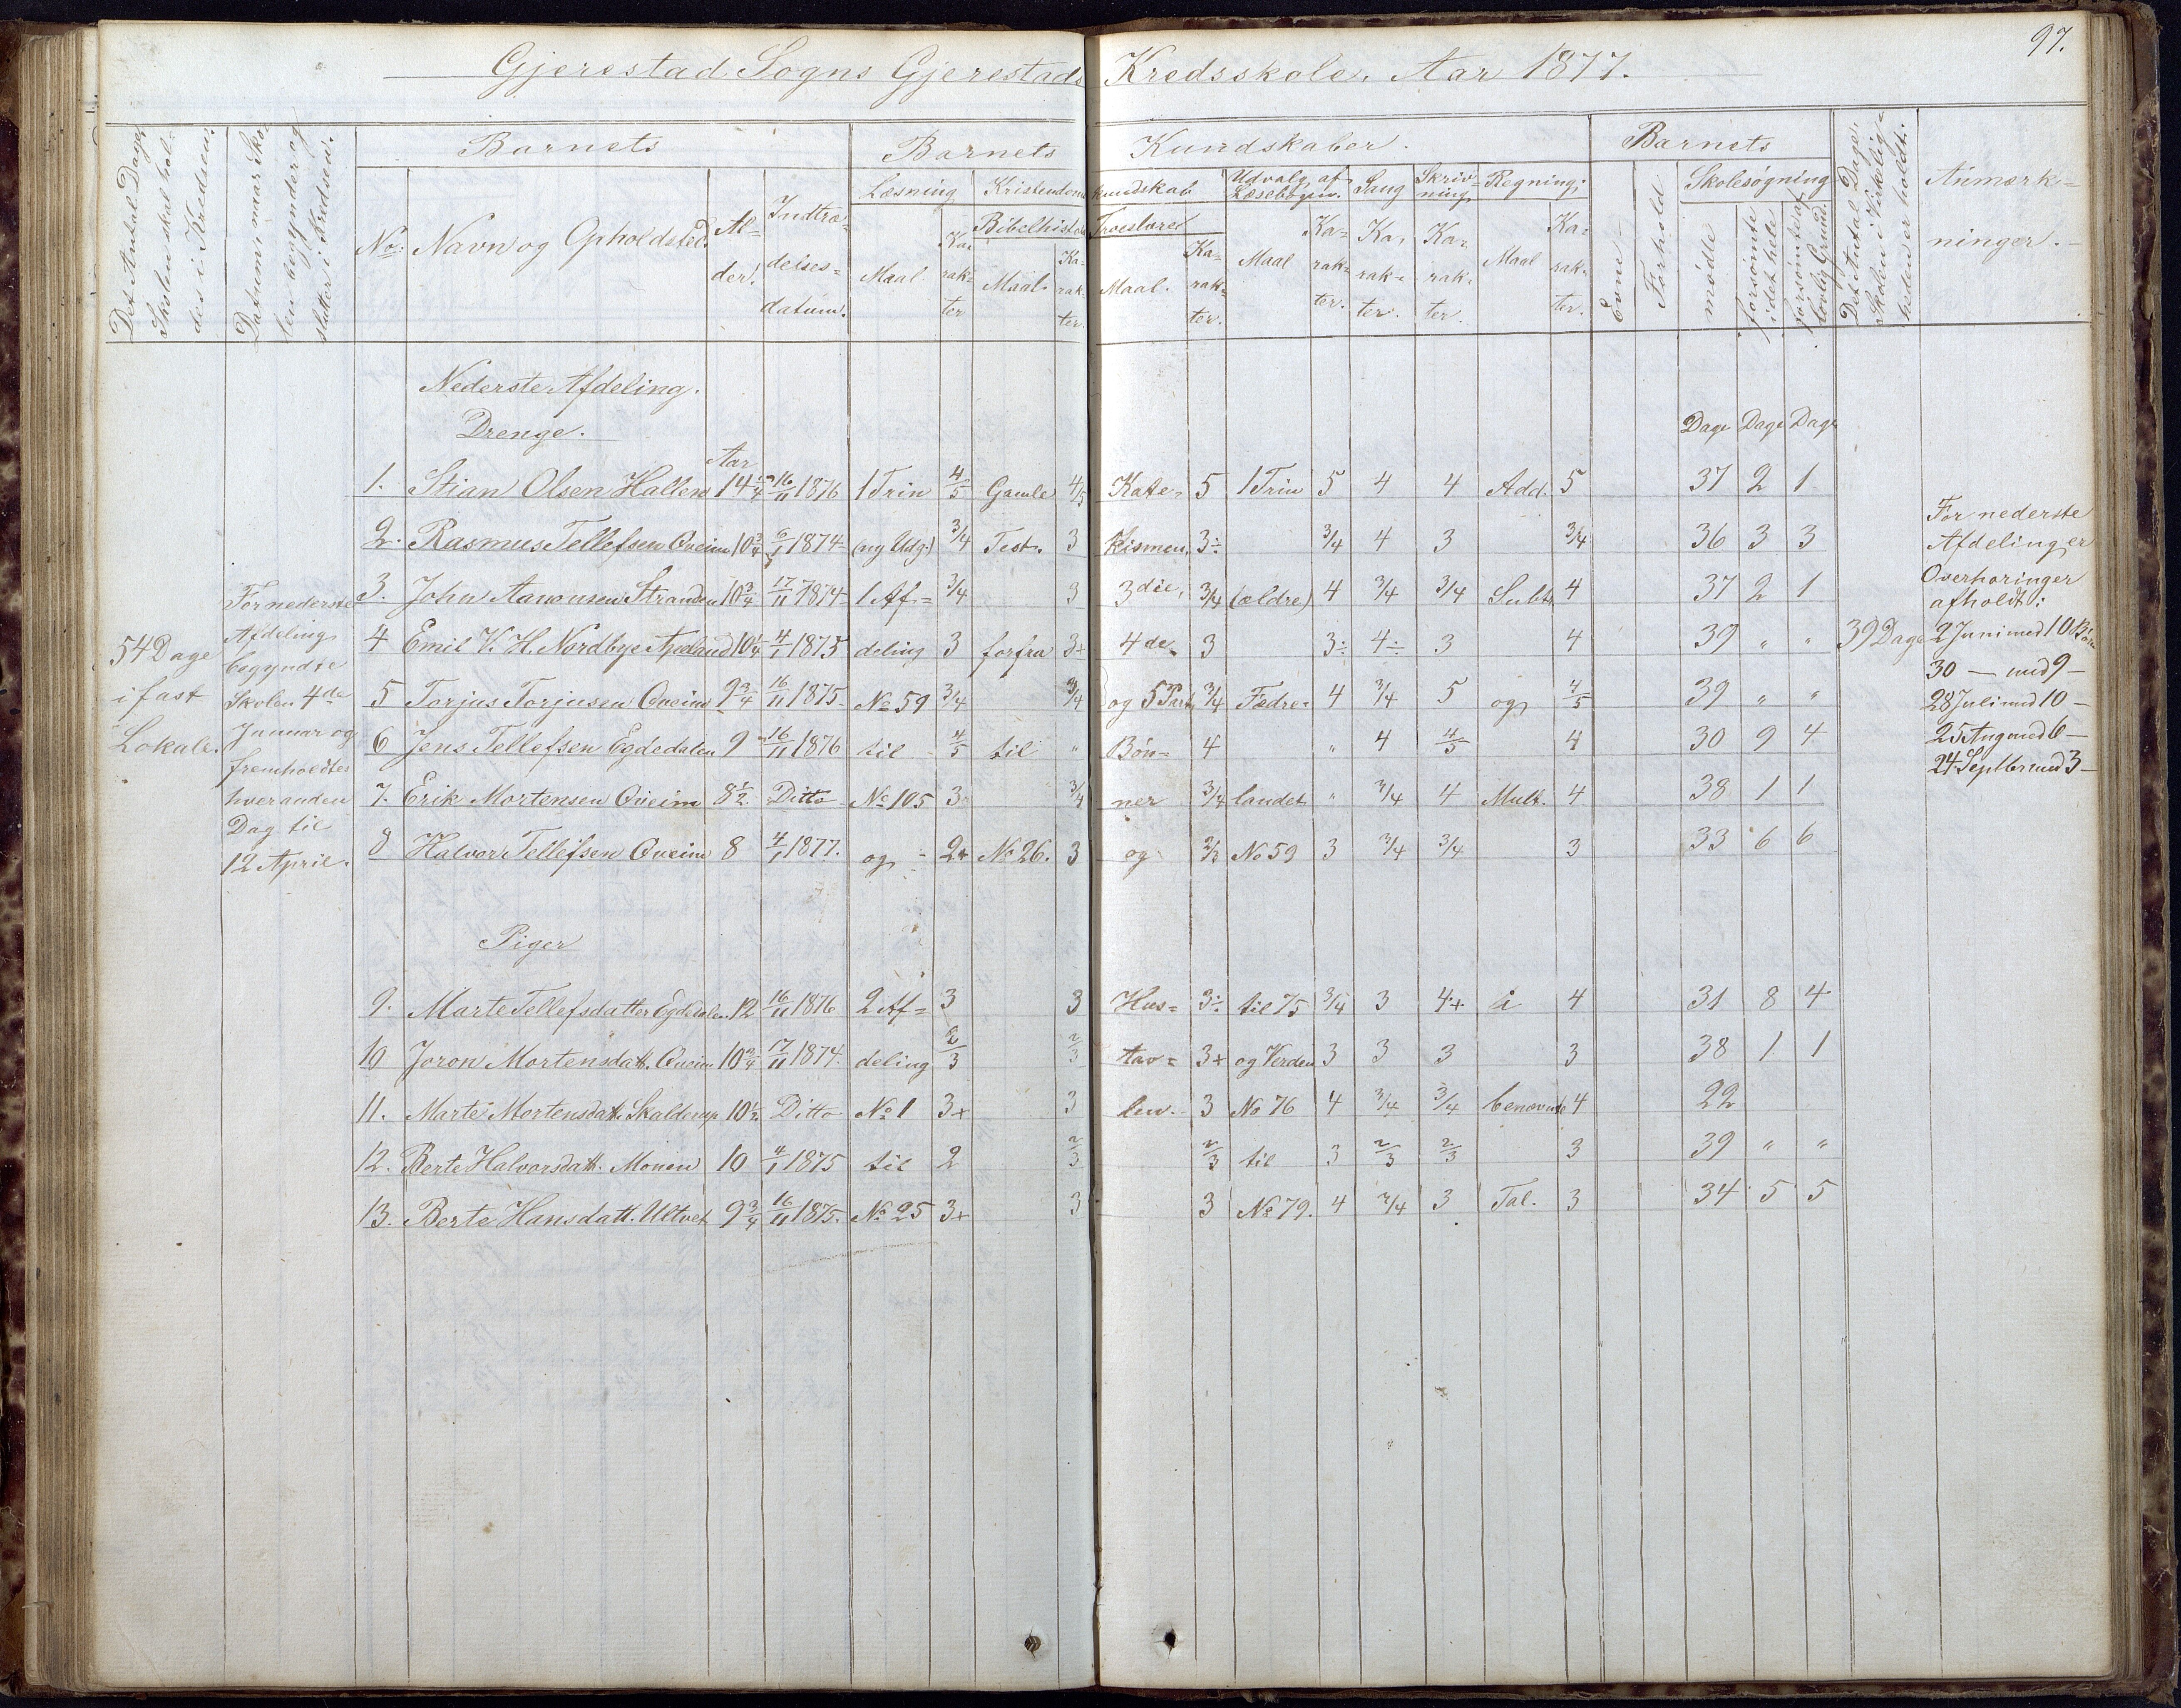 97.
Gjerestad Sogns Gjerestads Kredsskole. Aar 1877.
Det Antal Dage, Skolen skal holdes i Kredsen.
Datum, naar Skolen begynder og slutter i Kredsen.
Barnets
Barnets Kundskaber.
Barnets
Det Antal Dage, Skolen i Virkeligheden er holdt.
Anmærkninger.
No. Navn og Opholdsted. Alder. Indtrædelsesdatum.
Læsning Kristendomskundskab Udvalg af Læsebogen. Sang Skrivning Regning.
Bibelhistorie Troeslære
Maal. Karakter Maal. Karakter. Maal. Karakter. Maal Karakter. Karakter. Karakter. Maal Karakter.
Evne Forhold Skolesøgning
mødte forsømte i det hele forsømte af lovlig Grund.
Nederste Afdeling.
Drenge.
Aar Dage Dage Dage
1. Stian Olsen Hallen 14 1/4 16/11 1876 1 Trin 4/5 Gamle 4/5 Kate- 5 1 Trin 5 4 4 Add. 5 37 2 1
2. Rasmus Tellefsen Qveim 10 3/4 6/1 1874 (ny Udg.) 3/4 Test. 3 kismen, 3÷ 3/4 4 3 3/4 36 3 3
3. John Aanonsen Stranden 10 3/4 17/11 1874 1 Af= 3/4 3 3die, 3/4 (ældre) 4 3/4 3/4 Subt. 4 37 2 1
4 Emil V. H. Nordbye Apeland 10 1/4 4/1 1875 deling 3 forfra 3+ 4de 3 3÷ 4÷ 3 4 39 " " 39 Dage
5 Torjus Torjusen Qveim 9 3/4 16/11 1875. No 59 3/4 3/4 og 5 Part, 3/4 Fædre= 4 3/4 5 og 4/5 39 " "
6 Jens Tellefsen Egdedalen 9 16/11 1876 til 4/5 til " Bøn= 4 " 4 4/5 4 30 9 4
7. Erik Mortensen Qveim 8 1/2 Ditto No 105 3 3/4 ner 3/4 landet " 3/4 4 Mult. 4 38 1 1
8 Halvor Tellefsen Qveim 8 4/1 1877. og 2+ No 26. 3 og 2/3 No 59 3 3/4 3/4 3 33 6 6
54 Dage
i fast
Lokale.
For nederste
Afdeling
begyndte
Skolen 4de
Januar og
fremholdtes
hveranden
Dag til
12 April.
For nederste
Afdeling er
Overhøringer
afholdt:
2 Juni med 10 Børn
30 — med 9 —
28 Juli med 10 —
25 Aug med 6 —
24 Septber med 3 —
Piger
9. Marte Tellefsdatter Egdedalen 12 16/11 1876 2 Af= 3 3 Hus= 3÷ til 75 3/4 3 4+ i 4 31 8 4
10 Joron Mortensdatt. Qveim 10 3/4 17/11 1874. deling 2/3 2/3 tav= 3+ og Verden 3 3 3 3 38 1 1
11. Marte Mortensdatt. Skalderup 10 1/2 Ditto No 1 3+ 3 len. 3 No 76 4 3/4 3/4 benævnte 4 22
12. Berte Halvorsdatt. Monen 10 4/1 1875 til 2 2/3 2/3 til 3 2/3 2/3 3 39 " "
13. Berte Hansdatt. Ultvet 9 3/4 16/11 1875. No 25 3+ 3 3 No 79. 4 3/4 3 Tal. 3 34 5 5